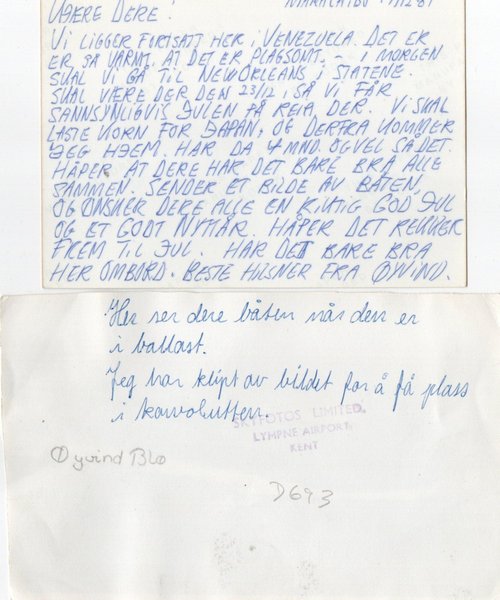 MARACAIBO 17.12-81
KJÆRE DERE!
VI LIGGER FORTSATT HER I VENEZUELA. DET ER
ER, SÅ VARMT. AT DET ER PLAGSOMT. - I MORGEN
SKAL VI GÅ TIL NEW ORLEANS I STATENE.
SKAL VÆRE DER DEN 23/12, SÅ VI FÅR
SANNSYNLIGVIS JULEN PÅ REIA DER. VI SKAL
LASTE KORN FOR JAPAN, OG DERFRA KOMMER
JEG HJEM. HAR DA 4 MND. OG VEL SÅ DET.
HÅPER AT DERE HAR DET BARE BRA ALLE
SAMMEN. SENDER ET BILDE AV BÅTEN,
OG ØNSKER DERE ALLE EN RIKTIG GOD JUL
OG ET GODT NYTTÅR. HÅPER DET REKKER
FREM TIL JUL. HAR DET BARE BRA
HER OMBORD. BESTE HILSNER FRA ØYVIND.
Her ser dere båten når den er
i ballast.
Jeg har klipt av bildet for å få plass
i konvolutten.
SKYFOTOS LIMITED,
LYMPNE AIRPORT,
KENT
Øyvind Blo
D693